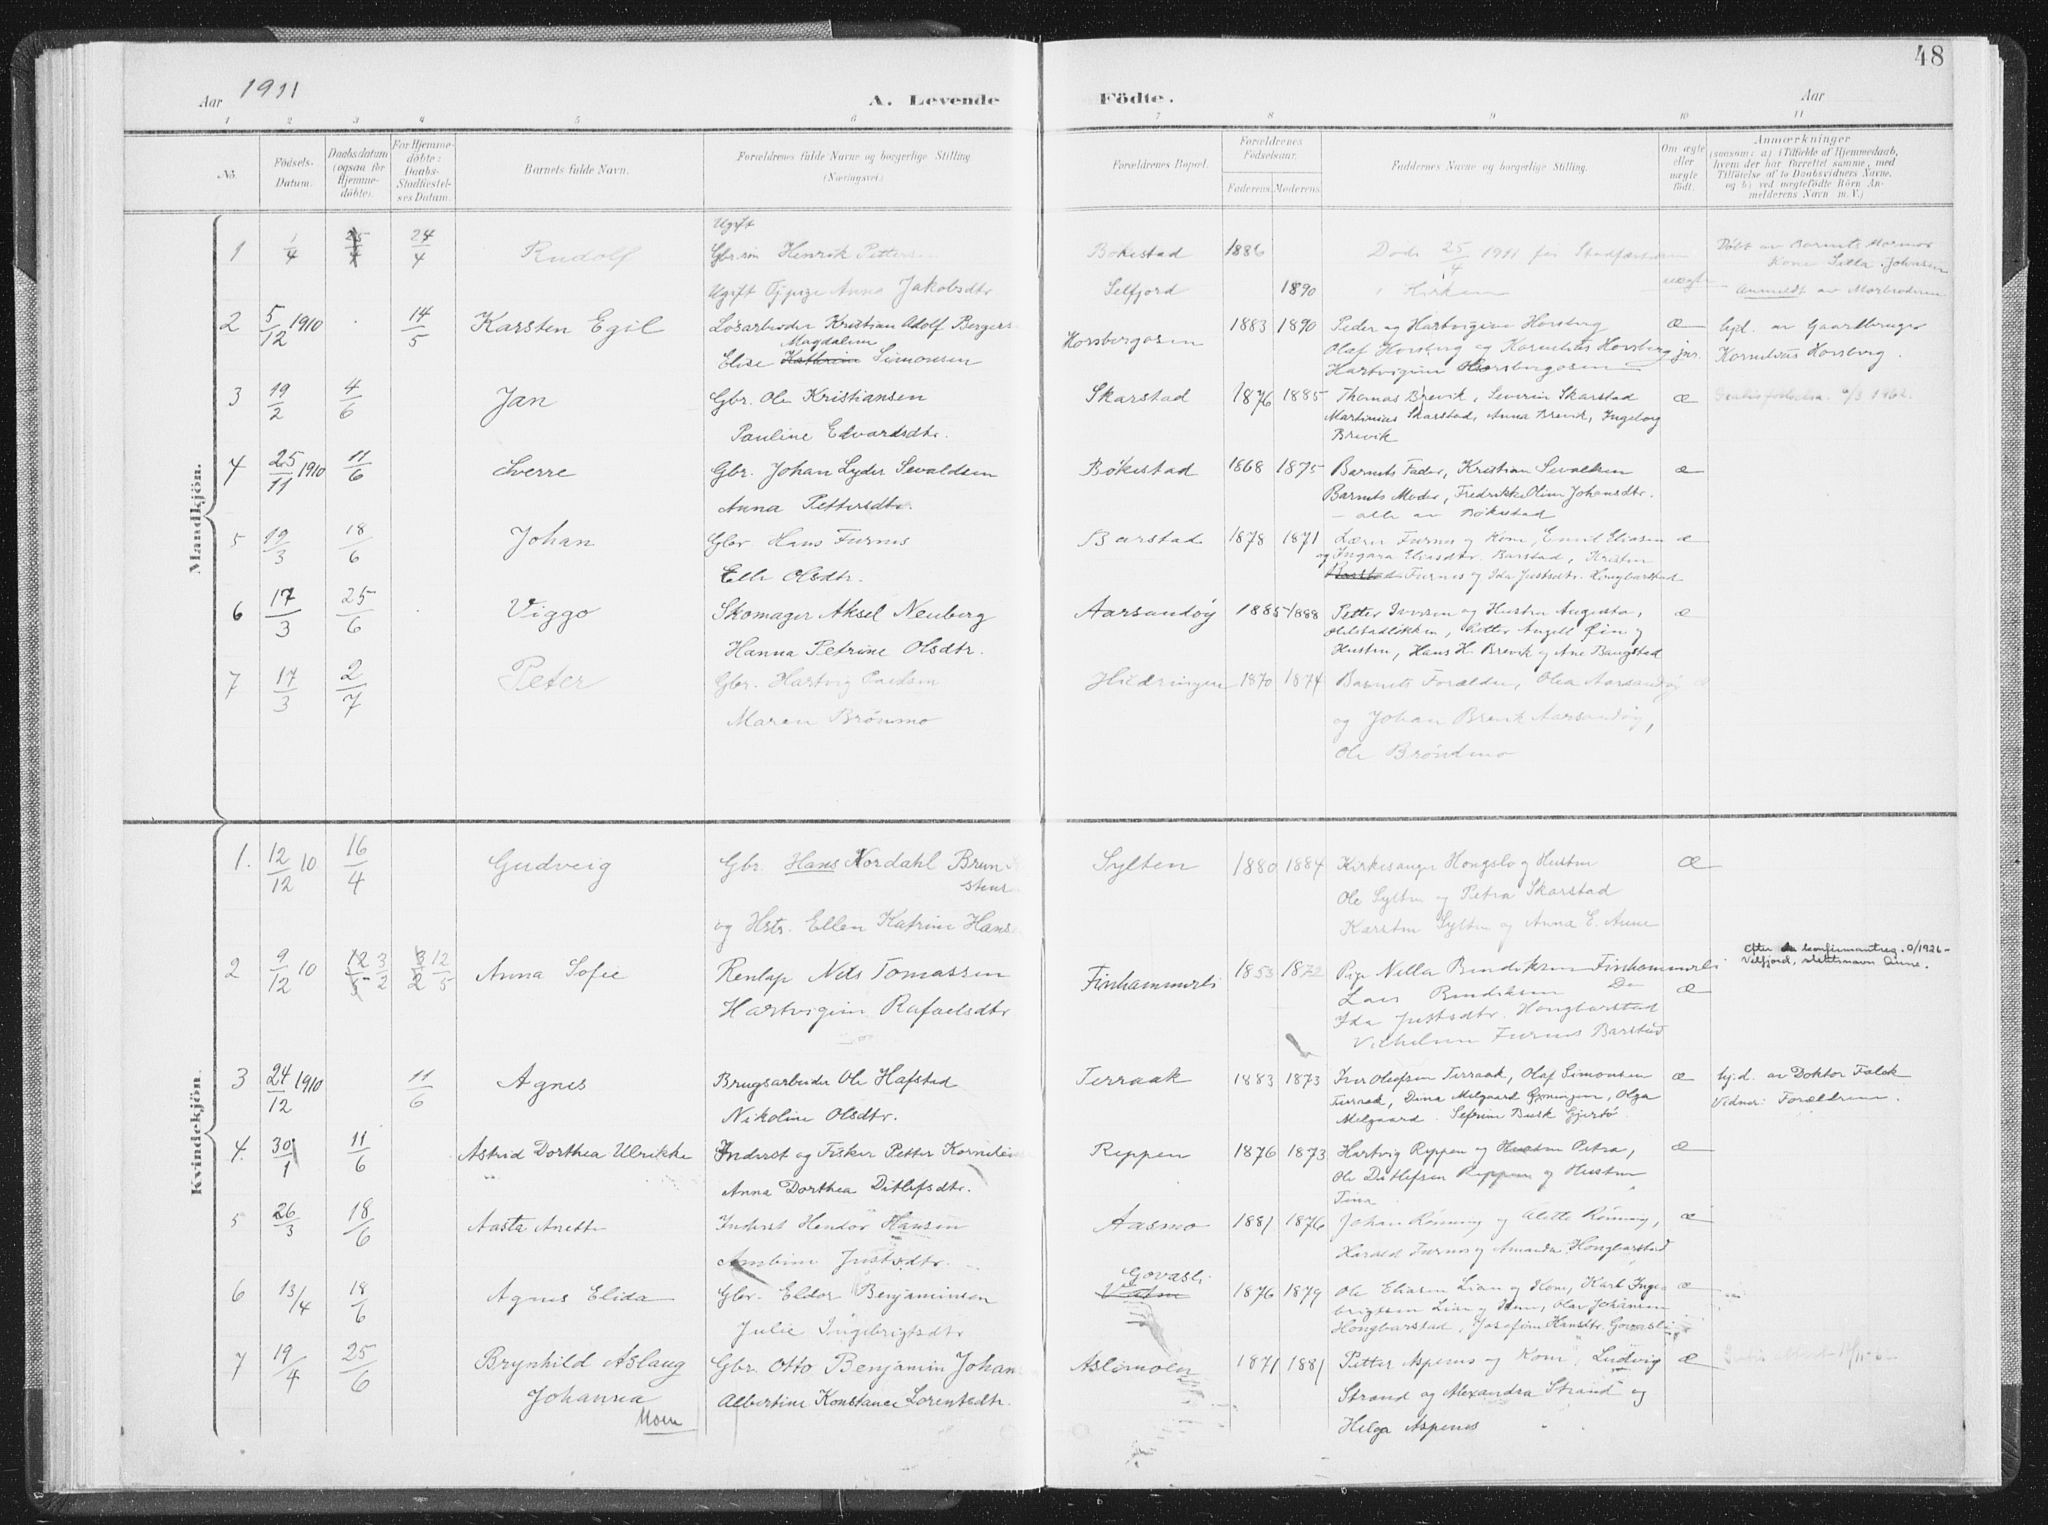 48
Aar 1911
A. Levende
Födte.
Aar
1 2 3 4 5 6 7 8 9 10 11
No.
Födsels-
Datum.
Daabsdatum
(ogsaa for
Hjemme-
döbte).
For Hjemme-
döbte:
Daabs-
Stadfæstel-
ses Datum.
Barnets fulde Navn.
Forældrenes fulde Navne og borgerlige Stilling
(Næringsvei).
Forældrenes Bopæl.
Forældrenes
Födselsaar.
Faderens. Moderens.
Faddernes Navne og borgerlige Stilling.
Om ægte
eller
uægte
födt.
Anmærkninger
(saasom: a) i Tilfælde af Hjemmedaab,
hvem der har forrettet samme, med
Tilföielse af to Daabsvidners Navne,
og b) ved uægtefödte Börn An-
melderens Navn m. V.)
Mandkjön.
Ugift
1 1/4 25/4 24/4 Rudolf Gbr.søn Henrik Petters Bøkestad 1886 Døde 25/4 1911 før Stadfæstelsen Døbt av Barnets Mormor
Kone Johnsen
Ugift Anna Jakobsdtr Selfjord 1890 i Kirken uægte Anmeldt av Morbroderen
2 5/12 1910 14/5 Karsten Egil Løsarbeider Kristian Adolf Bergers Horsbergosen 1883 1890 Peder og Hartvigine Horsberg æ hjd. av Gaardbruger
Magdalene
Elise Kathrine Simonsen Olaf Horsberg og Kornelius Horsberg jnr. Kornelius Horsberg.
Hartvigine Horsbergosen
3 19/2 4/6 Jan Gbr. Ole Kristiansen Skarstad 1876 1885 Thomas Brevik, Severin Skarstad æ 1962.
Pauline Edvardsdtr. Martinius Skarstad, Anna Brevik, Ingeborg
Brevik
4 25/11 1910 11/6 Sverre Gbr. Johan Lyder Sevaldsen Bøkestad 1868 1875 Barnets Fader, Kristian Sevaldsen æ
Anna Pettersdtr Barnets Moder, Fredrikke Oline Johansdtr.
– alle av Bøkestad
5 19/3 18/6 Johan Gbr. Hans Furnes Barstad 1878 1871 Lærer Furnes og Kone, Emil Eliasen æ
Elle Olsdtr. og Ingara Eliasdtr. Barstad, Kristen
Barstad Furnes og Ida Justsdtr. Hongbarstad
6 17/3 25/6 Viggo Skomager Aksel Neuberg Aarsandøy 1885 1888 Petter Iversen og Hustru Augusta, æ
Hanna Petrine Olsdtr. Holstadløkken, Petter Angell Øin og
Hustru, Hans H. Brevik og Ane Baugstad
7 17/3 2/7 Peter Gbr. Hartvig Paulsen Hildringen 1870 1874 Barnets Forældre, Olea Aarsandøy æ
Maren Brönmo og Johan Brevik Aarsandøy,
Ole Bröndmo
Kvindekjön.
1. 12/12 10 16/4 Gudveig Gbr. Hans Nordahl Brun Sylten 1880 1884 Kirkesanger Hongslo og Hustru æ
Ole Sylten og Petra Skarstad
og Hstr. Ellen Katrine Hans Karsten Sylten og Anna E. Aune
2 9/12 10 12/5 3/2 3/2 12/5 Anna Sofie Renlap Nils Tomassen Finhammerli 1853 1872 Pige Nella Bendiksen Finhammerli Efter konfirmantreg. 0/1926 –
Velfjord, slektsnavn Aune.
Hartvigine Rafaelsdtr Lars Bendiksen Do æ
Ida Justsdtr. Hongbarstad
Vilhelm Furnes Barstad
3 24/12 1910 11/6 Agnes Brugsarbeider Ole Hafstad Terraak 1883 1873 Iver Oleofsen Terraak, Olaf Simonsen æ hj.d. av Doktor Falck
Nikoline Olsdtr. Terraak, Dina Melgaard Grøningen, Olga Vidner: Forældrene.
Melgaard. Sefrine Busk Gjertø
4. 30/1 11/6 Astrid Dorthea Ulrikke Inderst og Fisker Petter Kornelius Reppen 1876 1873 Hartvig Reppen og Hustru Petra, æ
Anna Dorthea Ditlefsdtr. Ole Ditlefsen Reppen og Hustru
Tina
5 26/3 18/6 Aasta Anette Inderst Hendor Hansen Aasmo 1881 1876 Johan Rönning og Alette Rönning, æ
Ambine Justsdtr. Harald Furnes og Amanda Hongbarstad
6 13/4 18/6 Agnes Elida Gbr. Eldor Benjaminsen Govasli 1876 1879 Ole Eliasen Lian og Kone, Karl Inge- æ
Julie Ingebrigtsdtr brigtsen Lian og Kone, Olav Johansen
Hongbarstad, Josefine Hansdtr. Govasli
7 19/4 25/6 Brynhild Aslaug Gbr. Otto Benjamin Johan Aslimoen 1871 1881 Petter Aspenes og Kone, Ludvig æ
Johanna Albertine Konstance Lorentsdtr. Strand og Alexandra Strand og
Moen Helga Aspenes